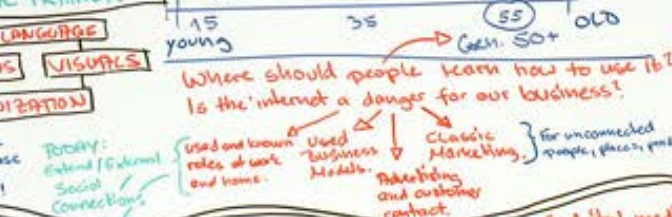 15 35 55 OLD
young Gen. 50+
LANGUAGE
VISUALS
Where should people learn how to use it?
Is the internet a danger for our business?
TODAY:
Extend/External
Social
Connections
Used and known
roles at work
and home.
Used
Business
Models.
Advertising
and customer
contact.
Classic
Marketing.
For unconnected
people, places,